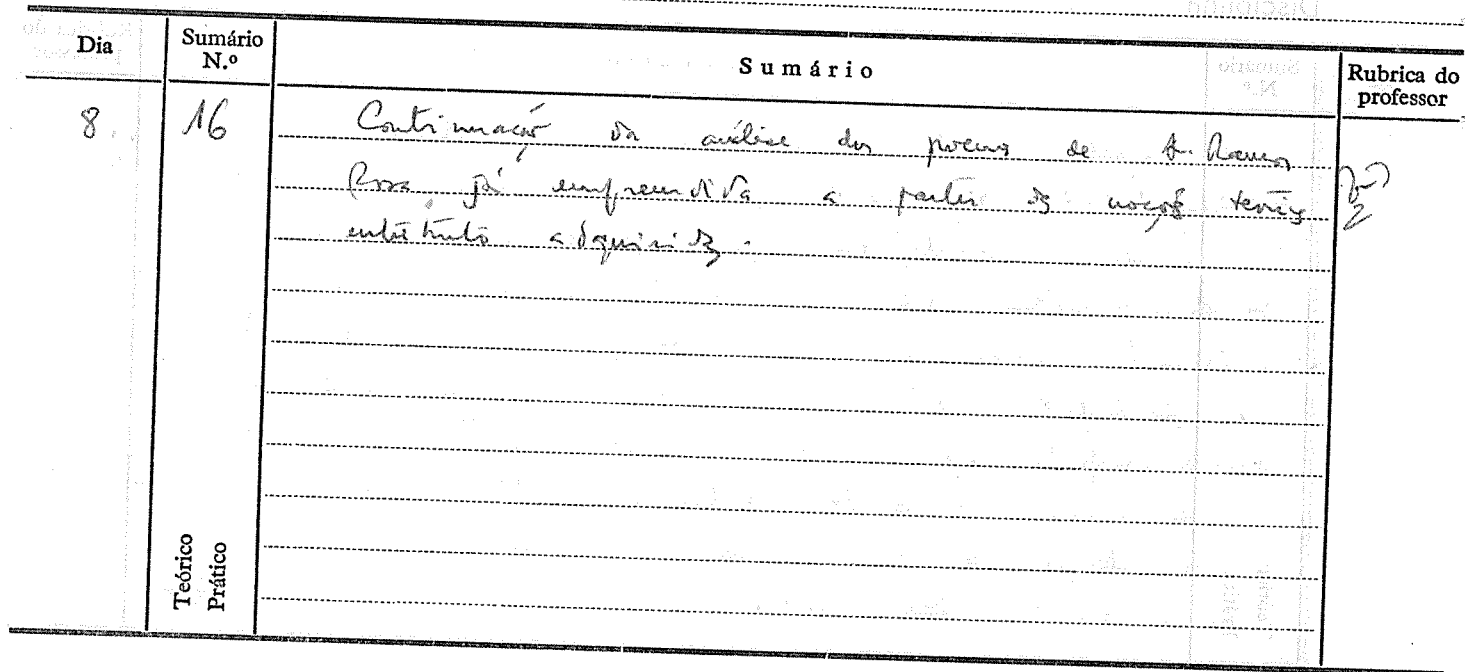 Dia
Sumário N.º
Sumário
Rubrica do professor
8
16
Continuação da análise dos poemas de A. Ramos
Rosa já empreendida a partir das noções teóricas
entretanto adquiridas.
Teórico
Prático